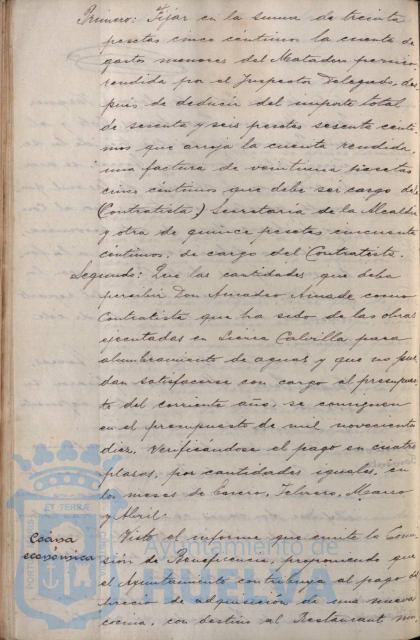 Primero: Fijar en la suma de treinta
pesetas cinco céntimos la cuenta de
gastos menores del Matadero
rendida por el Inspector Delegado, des
pués de deducir del importe total
de sesenta y seis pesetas sesenta cénti
mos que arroja la cuenta rendida,
una factura de veintiuna pesetas
cinco céntimos que debe ser cargo de
(Contratista,) Secretaría de la Alcaldía
y otra de quince pesetas cincuenta
céntimos, de cargo del Contratista.
Segundo: Que las cantidades que deba
percibir Don Amadeo como
Contratista que ha sido de las obras
ejecutadas en Sierra Calvilla para
alumbramiento de aguas y que no pue
dan satisfacerse con cargo al presupues
to del corriente año, se consignen
en el presupuesto de mil novecientos
diez, verificándose el pago en cuatro
plazos, por cantidades iguales, en
los meses de Enero, Febrero, Marzo
y Abril.
Cocina
económica
Visto el informe que emite la Comi
sión de Beneficencia, proponiendo que
el Ayuntamiento contribuya al pago del
precio de adquisición de una nueva
cocina, con destino al Restaurant
Ayuntamiento de
HUELVA
ET TERRAE